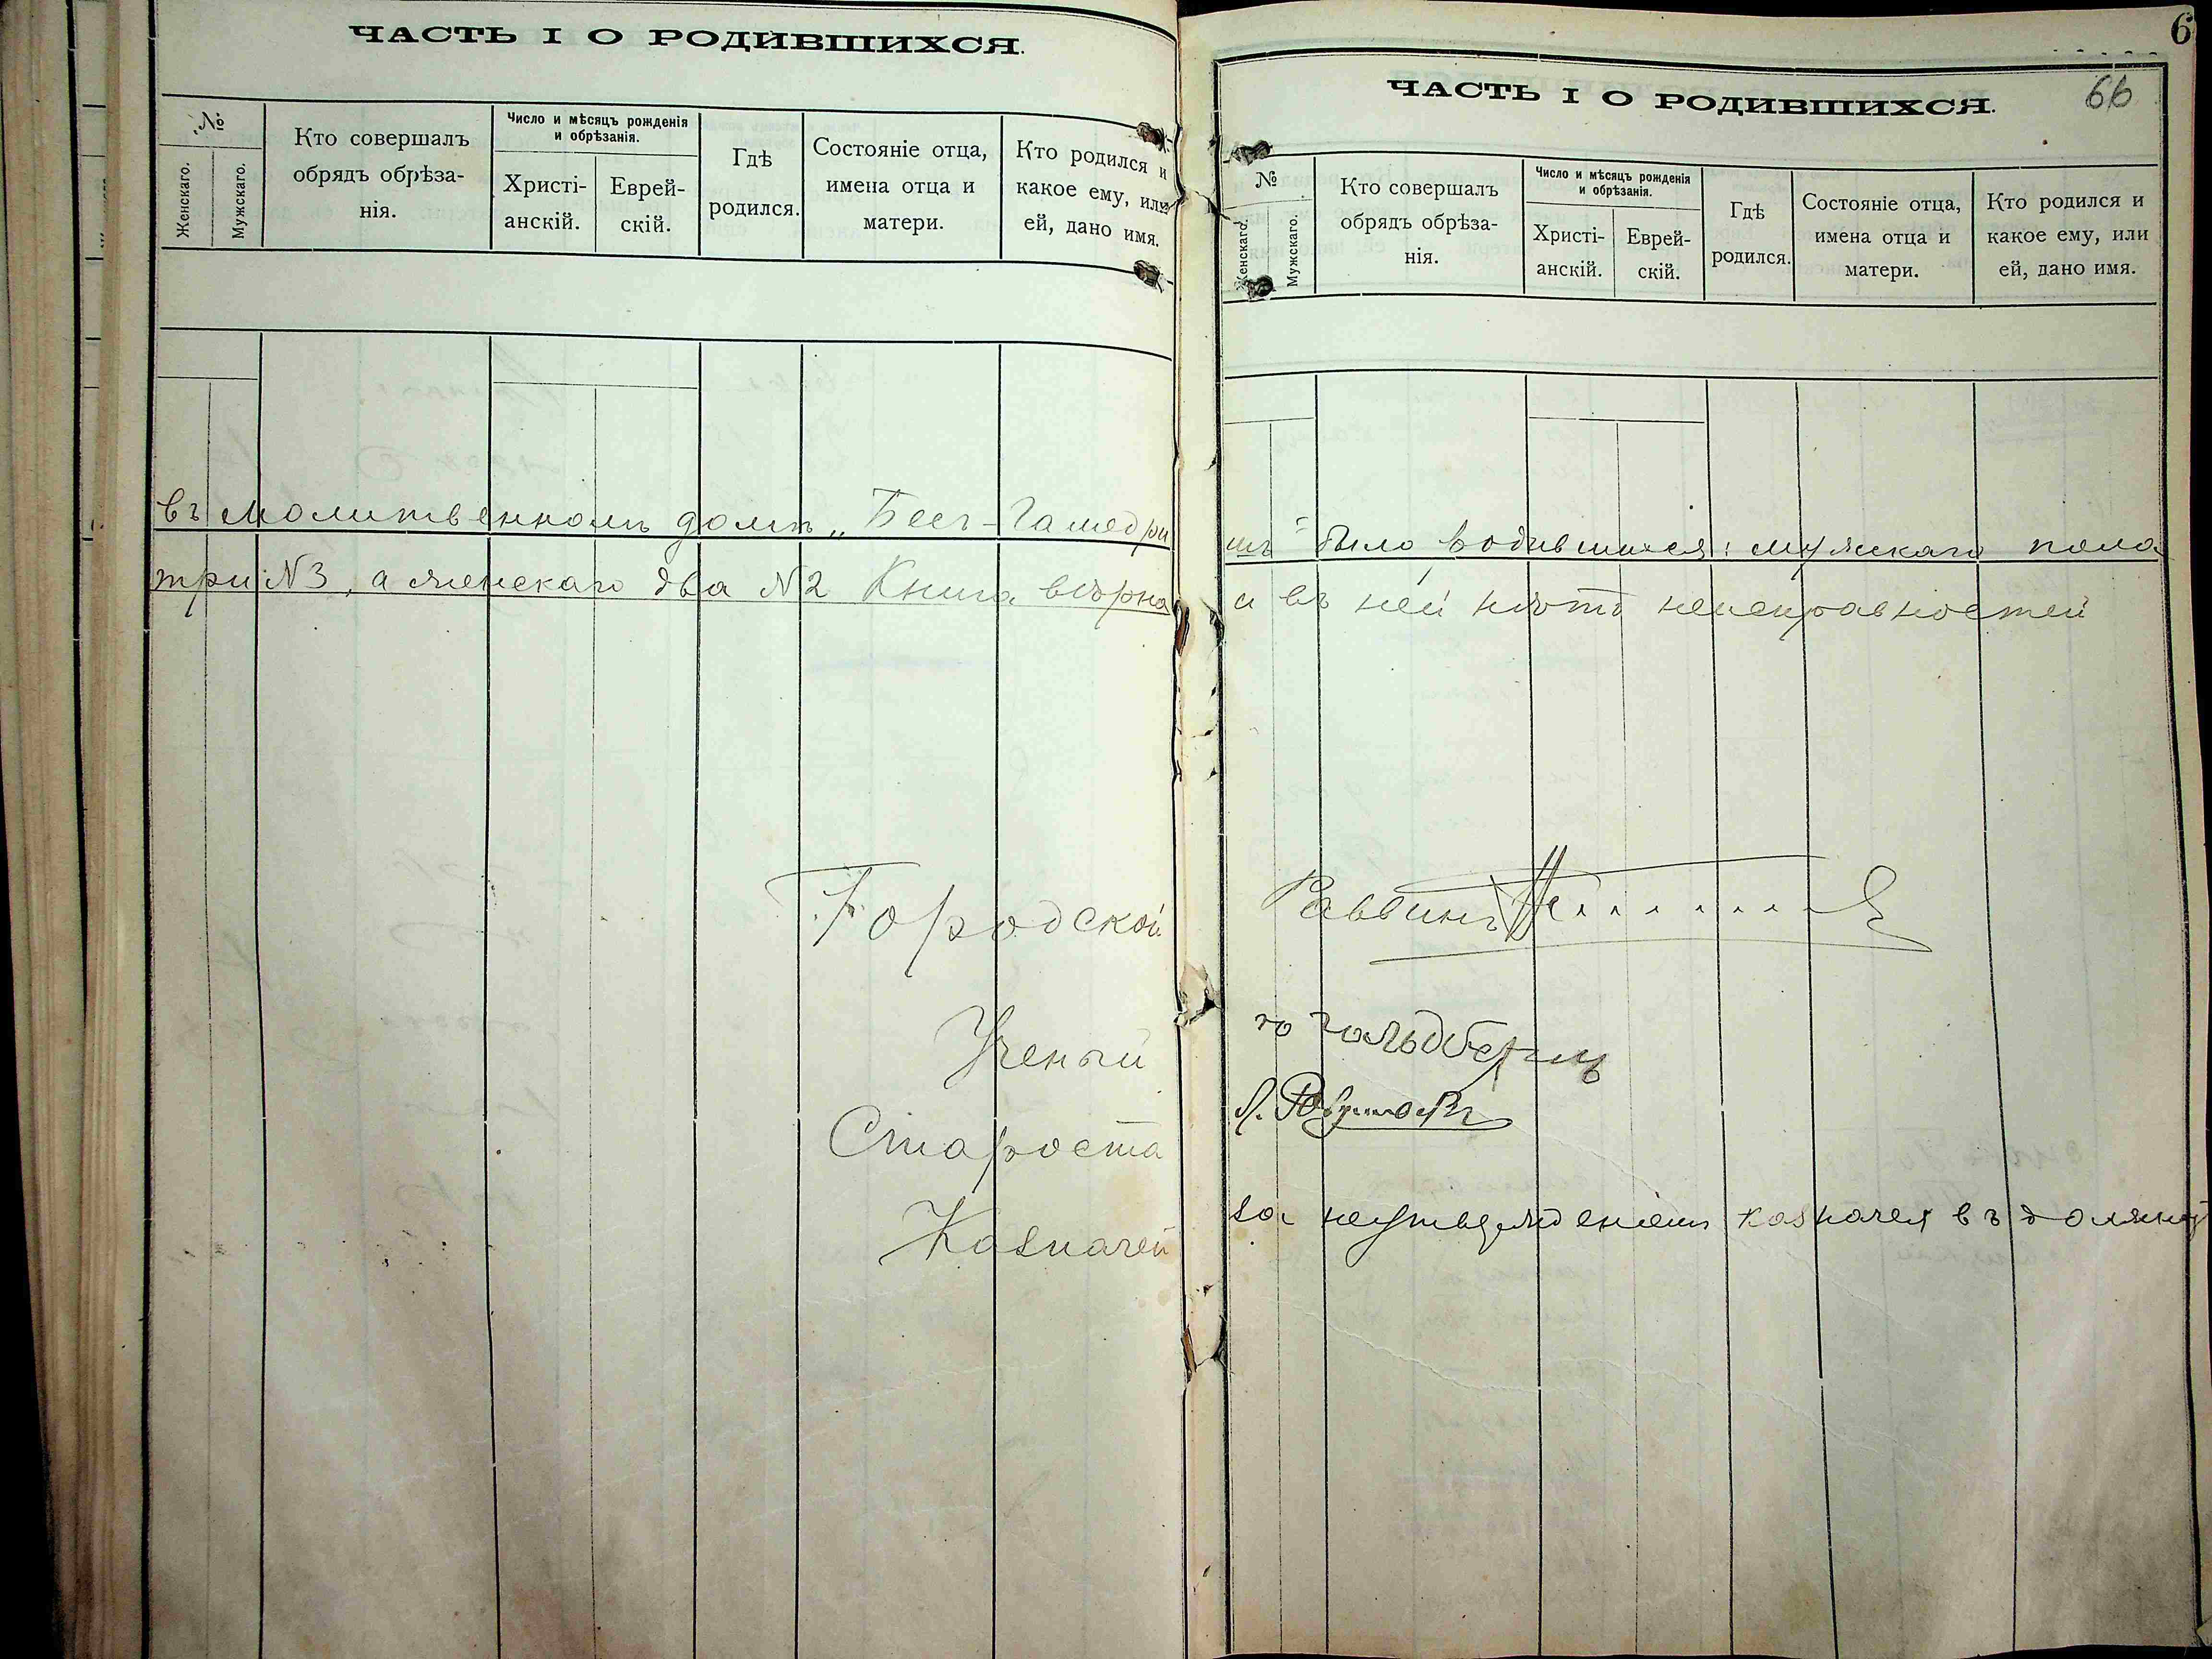 ЧАСТЬ I О РОДИВШИХСЯ.
№
Женскаго.
Мужскаго.
Кто совершалъ
обрядъ обрѣза-
нія.
Число и мѣсяцъ рожденія
и обрѣзанія.
Христі-
анскій.
Еврей-
скій.
Гдѣ
родился.
Состояніе отца,
имена отца и
матери.
Кто родился и
какое ему, или
ей, дано имя.
въ молитвенномъ домѣ „Бесъ-Гамедри
три №3, а женскаго два №2 Книга вѣрна
Городской
Ученый
Староста
Казначей
6
66
ЧАСТЬ I О РОДИВШИХСЯ.
№
Женскаго.
Мужскаго.
Кто совершалъ
обрядъ обрѣза-
нія.
Число и мѣсяцъ рожденія
и обрѣзанія.
Христі-
анскій.
Еврей-
скій.
Гдѣ
родился.
Состояніе отца,
имена отца и
матери.
Кто родился и
какое ему, или
ей, дано имя.
шъ" было родившихся: мужскаго пола
и въ ней нѣтъ неисправностей
Раввинъ
гольдбергъ
за неутвержденіемъ казначея въ должно